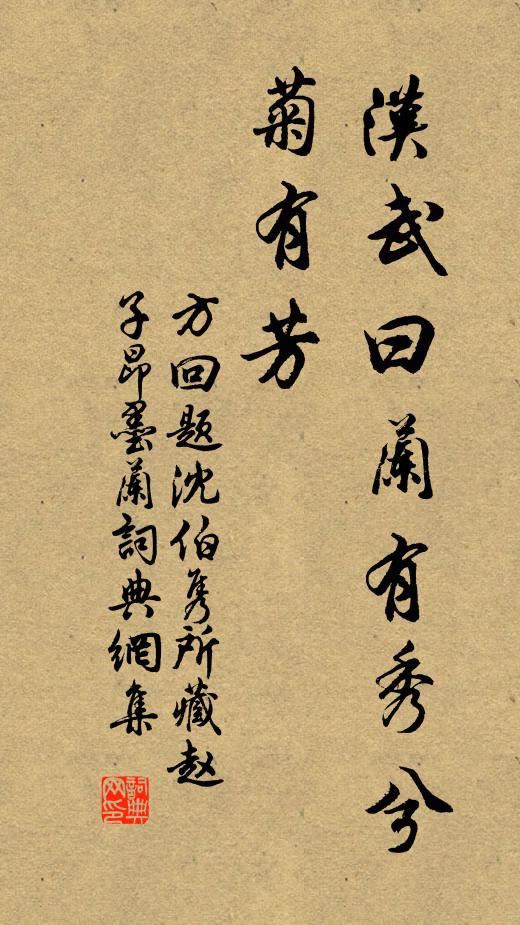 漢武曰蘭有秀兮
菊有芳
方回題沈伯隽所藏赵
子昂墨蘭詞典網集
詞典
网印